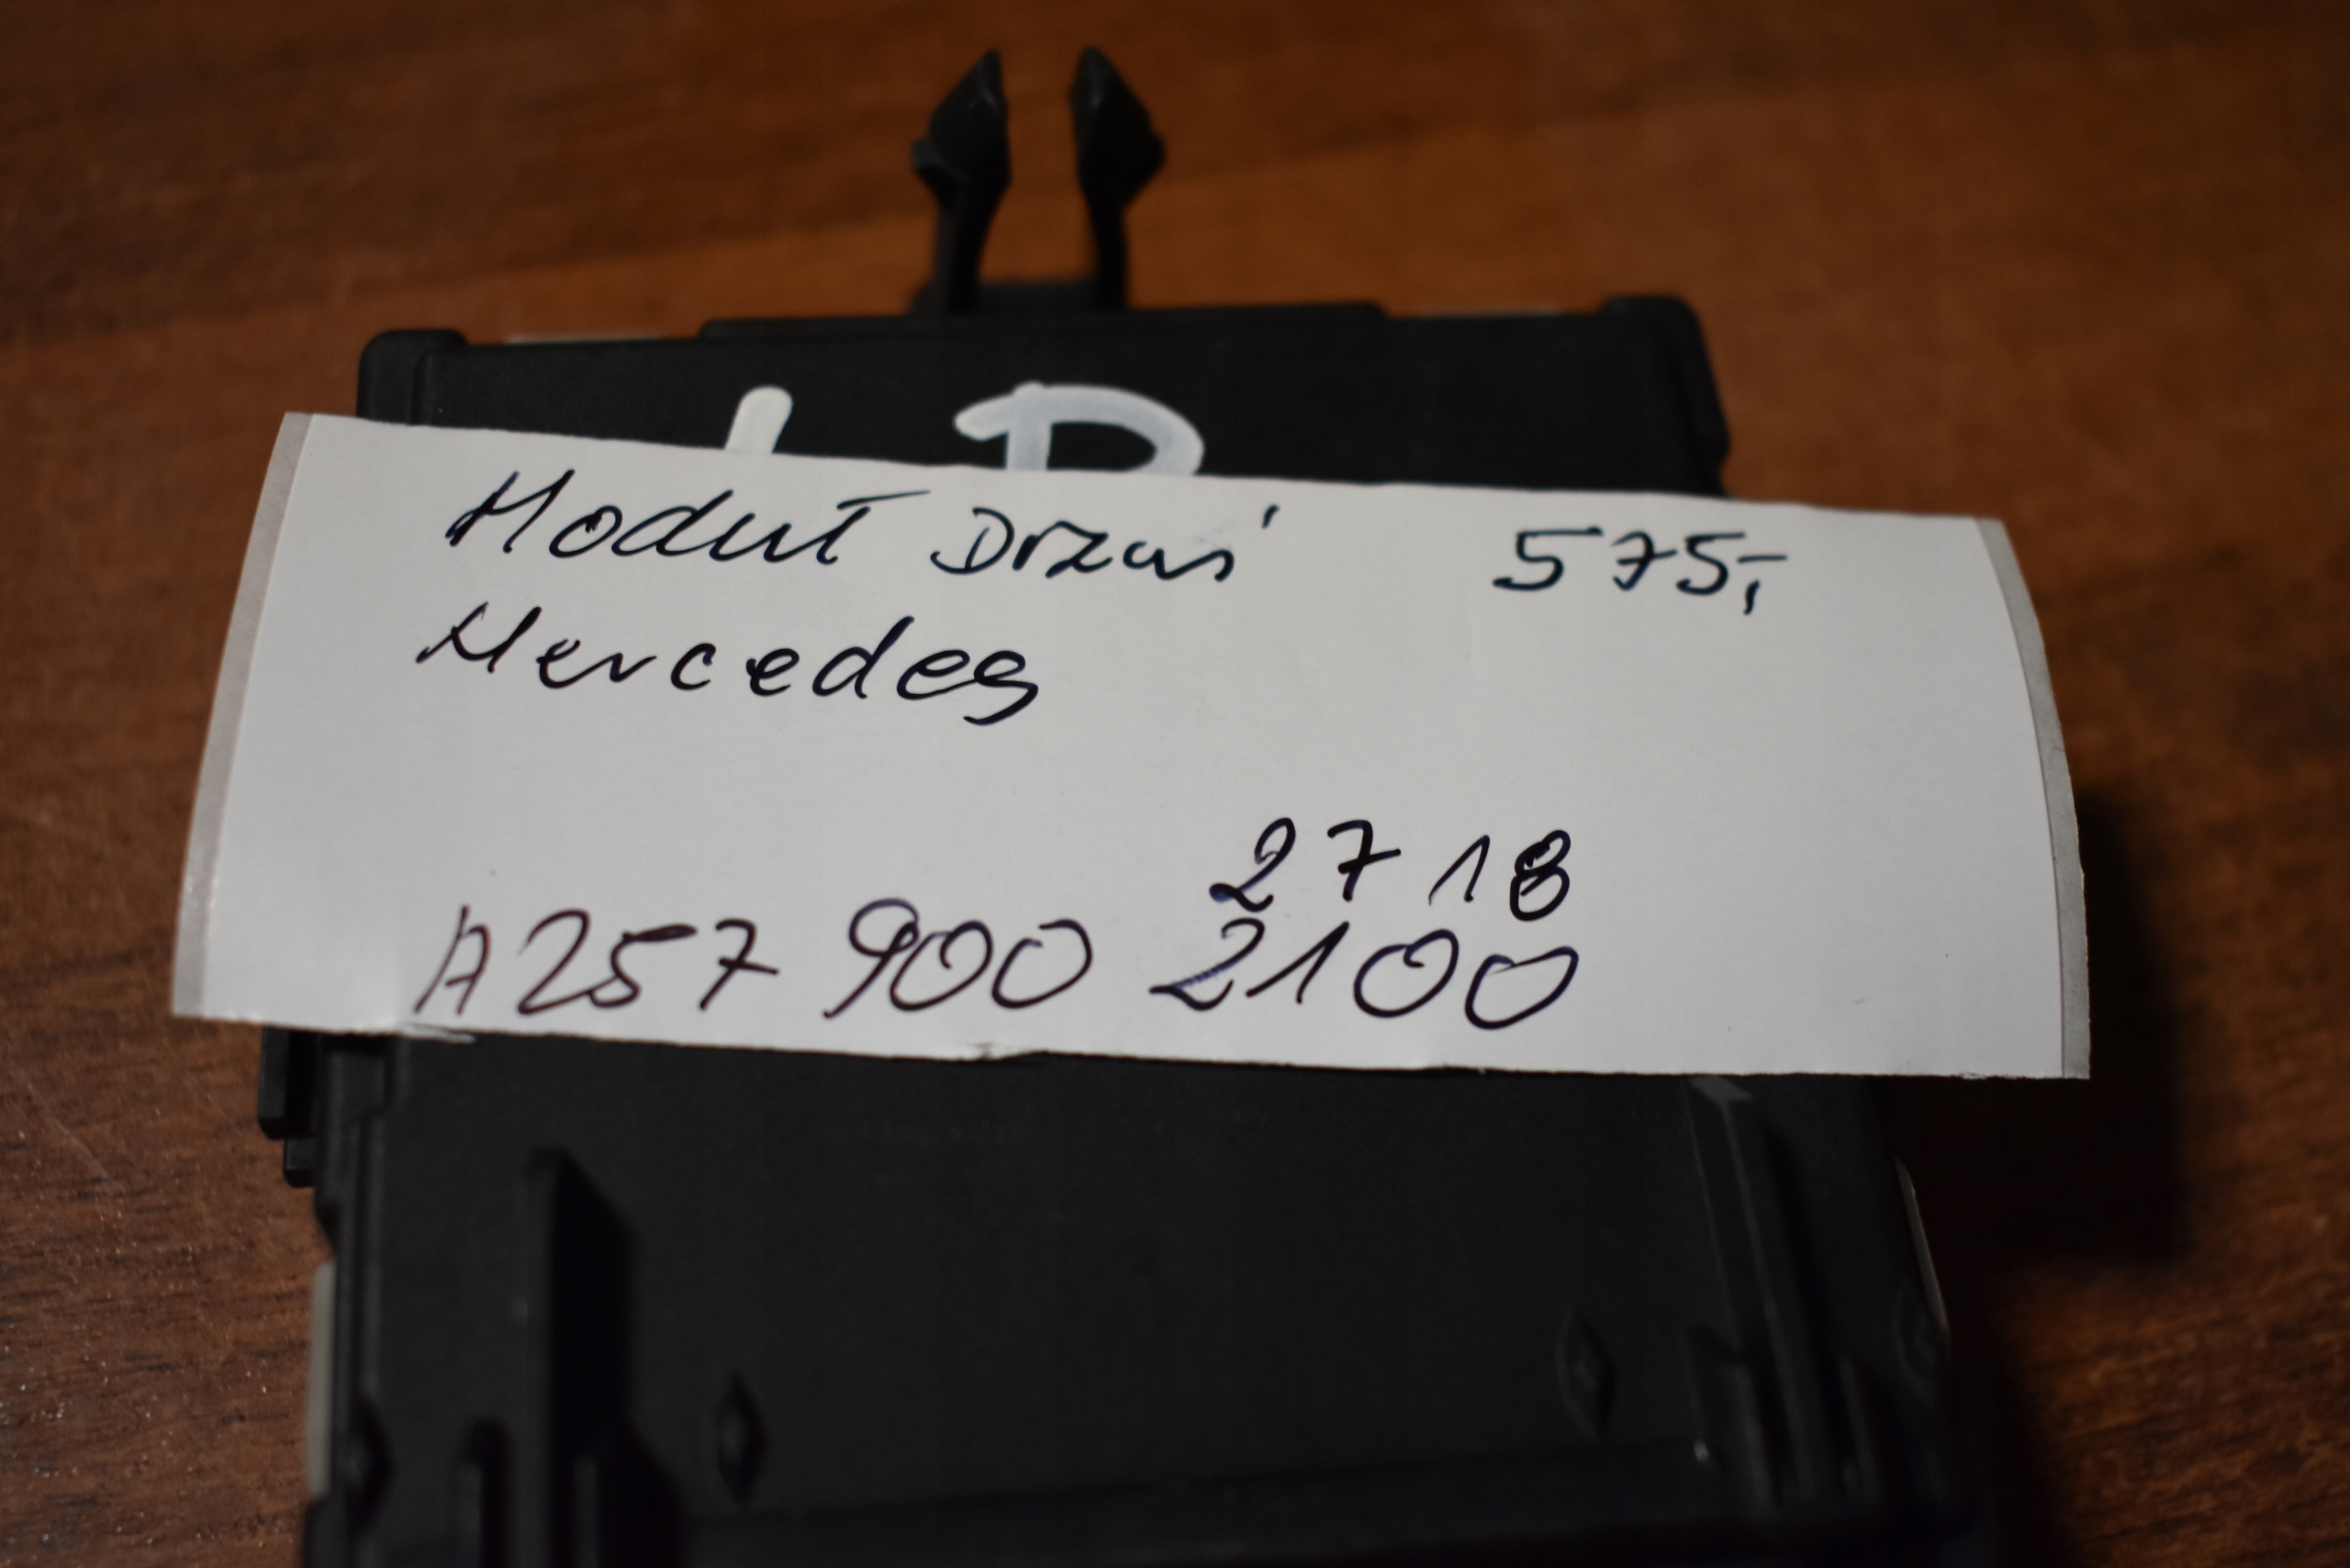 Moduł Drzwi 575,-
Mercedes
2718
A257 900 2100